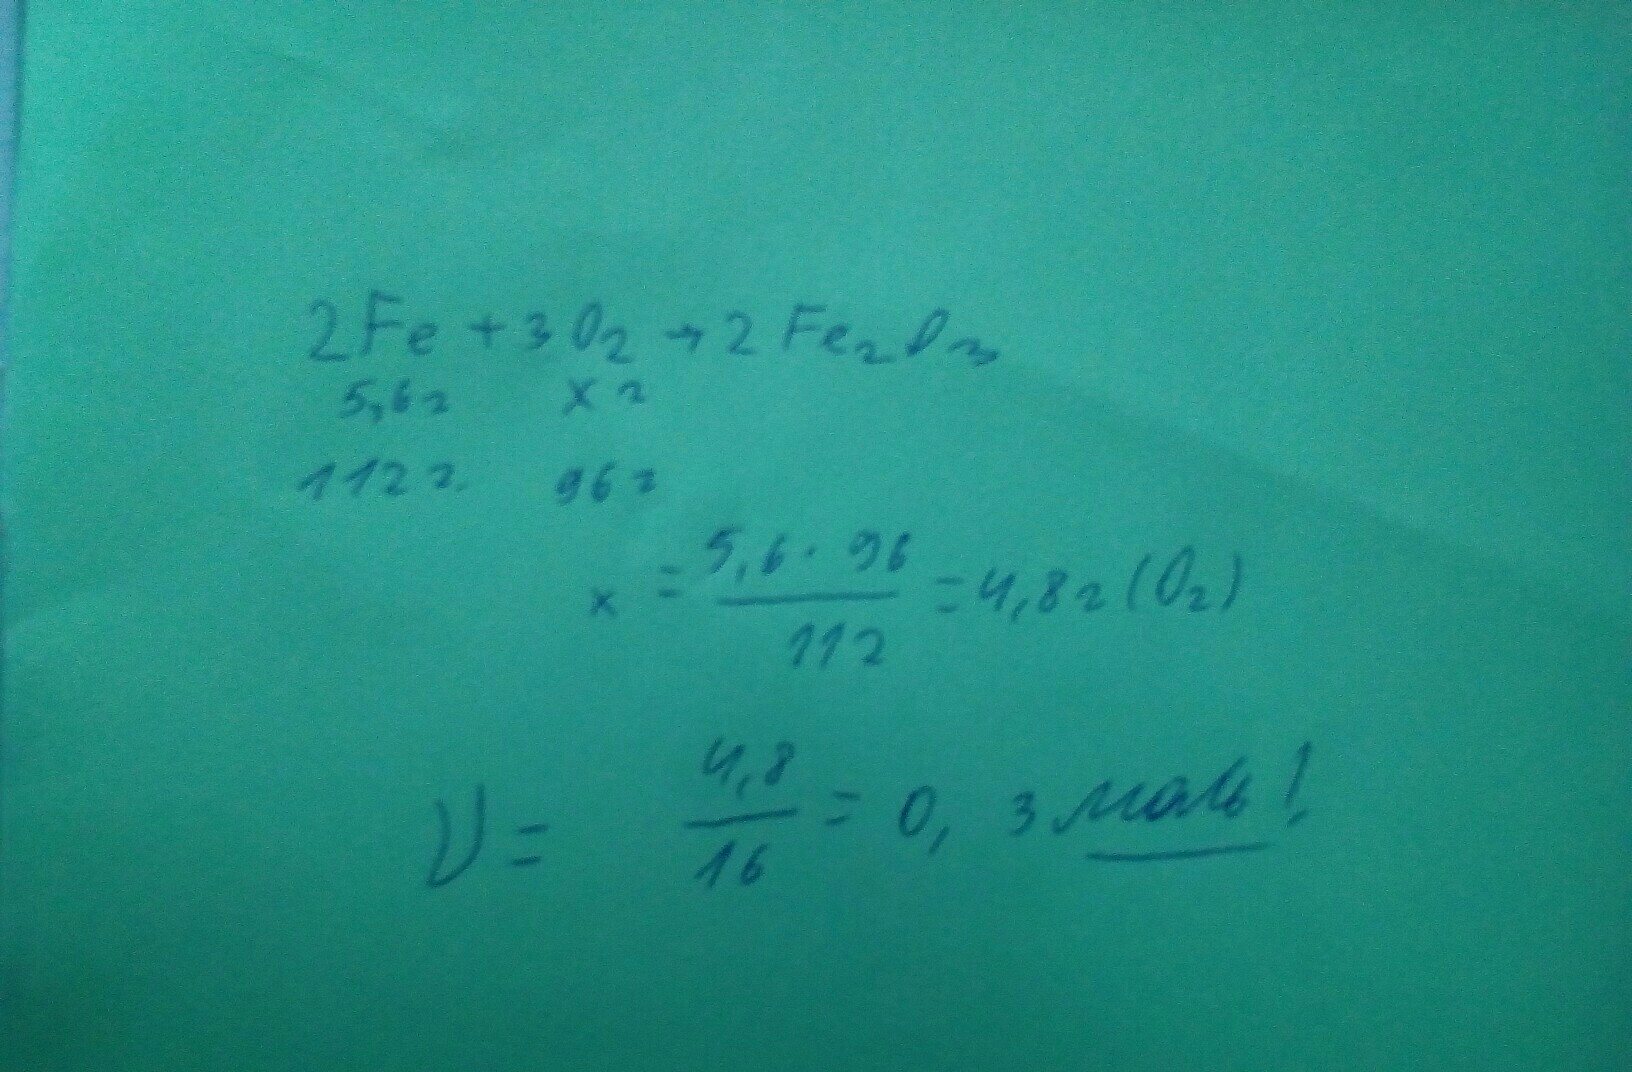 2Fe + 3O₂ → 2Fe₂O₃
5,6г x г
112 г. 96 г
x = 5,6 · 96 / 112 = 4,8 г (O₂)
ν = 4,8 / 16 = 0,3 моль!